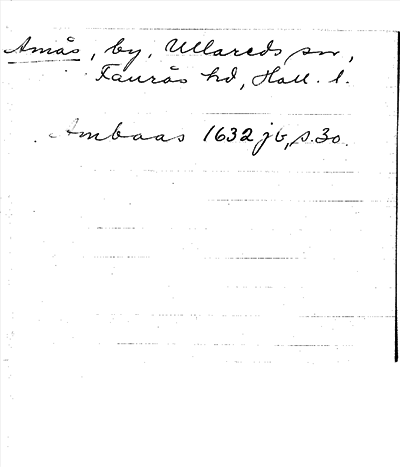 Amås, by, Ullareds sn,
Faurås hd, Hall. l.
Ambaas 1632 jb, s. 30.